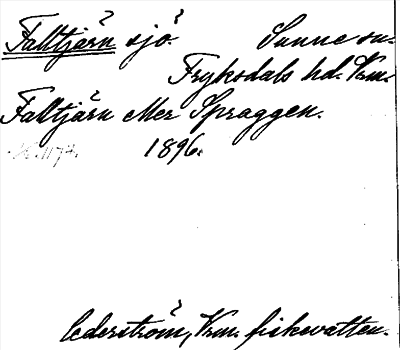 Faltjärn sjö. Sunne sn.
Fryksdals hd. Vrm.
Faltjärn eller Spraggen.
1896.
Cederström, Vrm. fiskevatten.